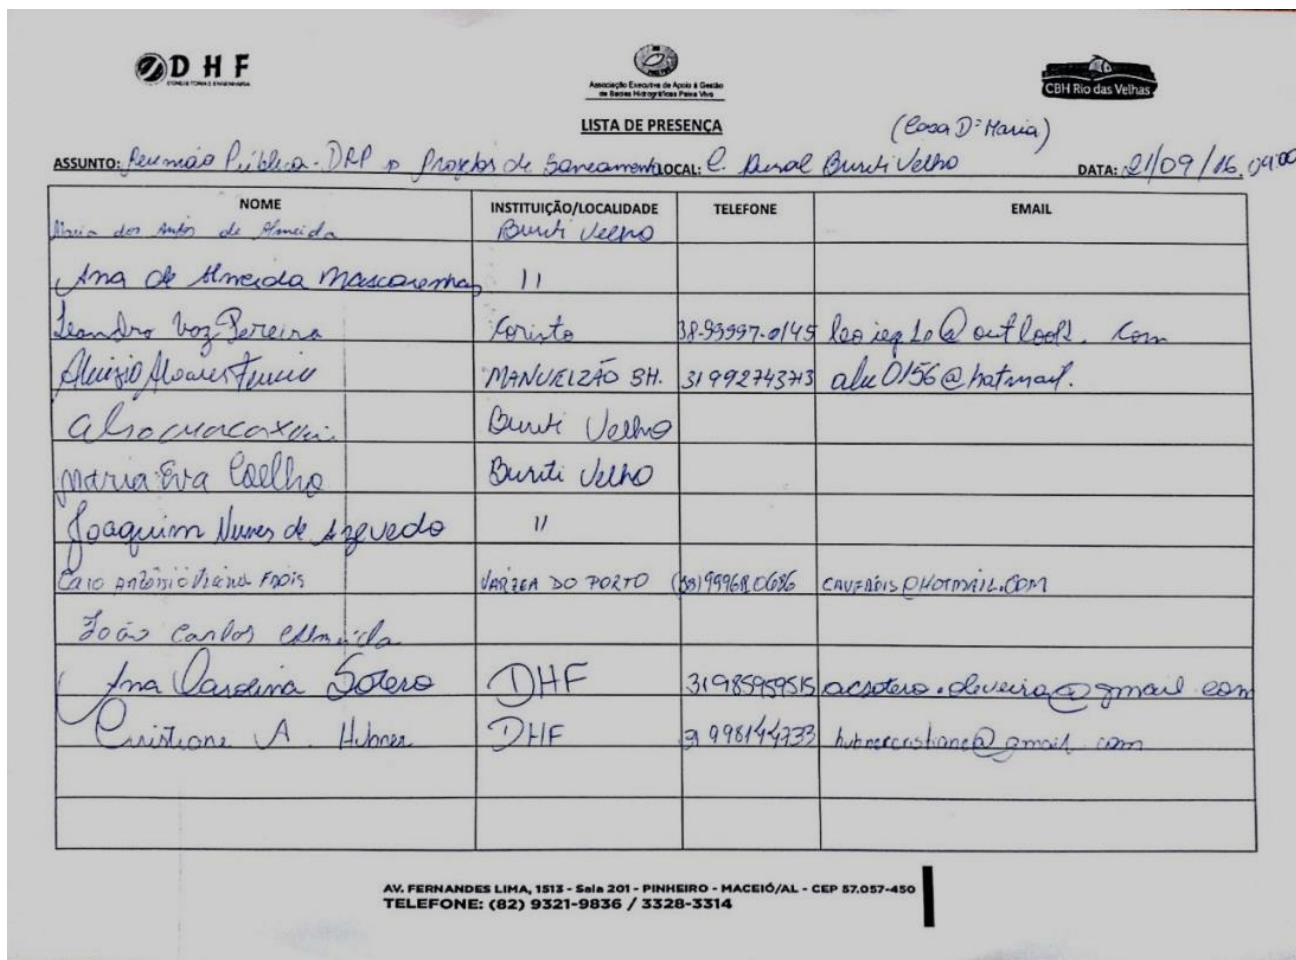 DHF
CONSULTORIA E ENGENHARIA
Associação Executiva de Apoio à Gestão
de Bacias Hidrográficas Peixe Vivo
CBH Rio das Velhas
LISTA DE PRESENÇA
(Casa Dª Maria)
ASSUNTO: Reunião Pública - DRP p Projetos de Saneamento LOCAL: C. Rural Buriti Velho DATA: 21/09/16. 09:00
NOME INSTITUIÇÃO/LOCALIDADE TELEFONE EMAIL
Maria dos Anjos de Almeida Buriti Velho
Ana de Almeida Mascarenhas 11
Leandro Voz Pereira Corinto 38-99997-0145 @outlook.com
Aluizio Alvares MANUELZÃO BH. 31992743713 alu0156@hotmail.
Buriti Velho
Maria Eva Coelho Buriti Velho
Joaquim Nunes de Azevedo 11
Caio Antônio Viana VARZEA DO PORTO @HOTMAIL.COM
João Carlos Almeida
Ana Carolina Sotero DHF 31985959515 acsotero.oliveira@gmail com
Cristiane A. Hubner DHF 31 998144733 hubnercristiane@gmail com
AV. FERNANDES LIMA, 1513 - Sala 201 - PINHEIRO - MACEIÓ/AL - CEP 57.057-450
TELEFONE: (82) 9321-9836 / 3328-3314